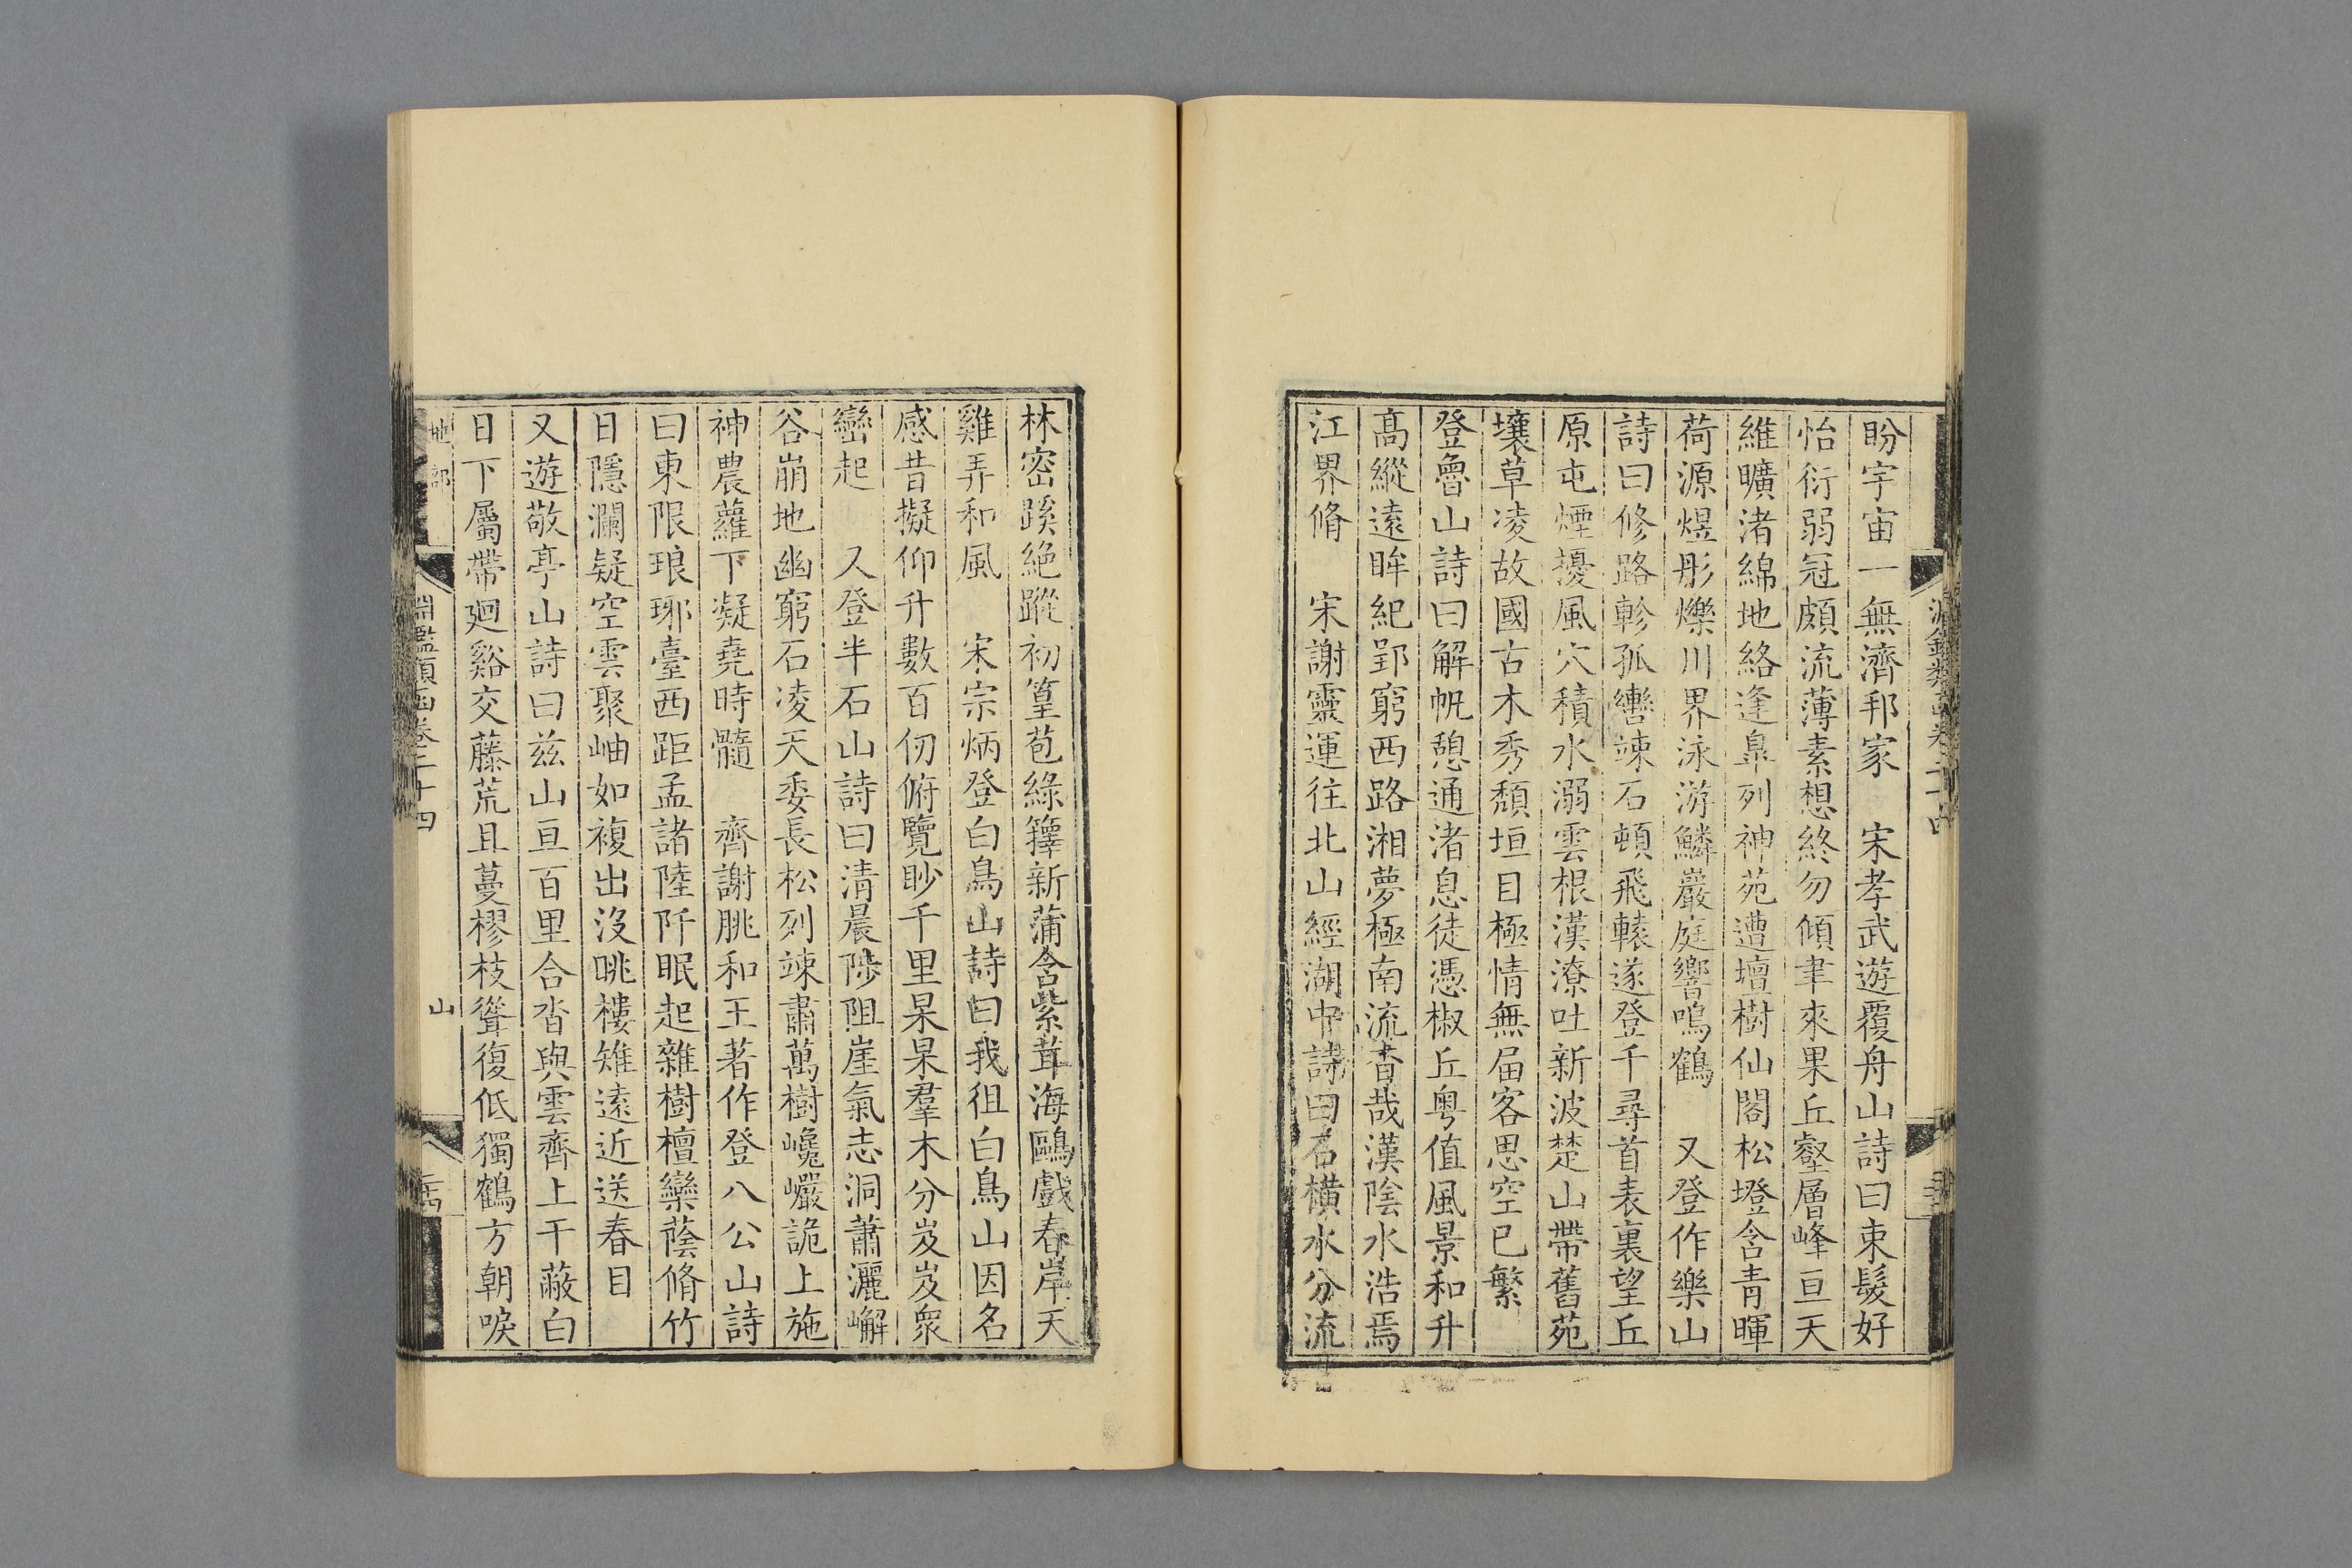 盼宇宙一無濟邦家　宋孝武遊覆舟山詩曰束髮好
怡衍弱冠頗流薄素想終勿傾聿來果丘壑層峰亘天
維曠渚綿地絡逢臯列神苑遭壇樹仙閣松墱含青暉
荷源煜彤爍川界泳游鱗巖庭響鳴鶴　又登作樂山
詩曰修路軫孤轡竦石頓飛轅遂登千尋首表裏望丘
原屯煙擾風穴積水溺雲根漢潦吐新波楚山帶舊苑
壤草凌故國古木秀頹垣目極情無届客思空已繁
登魯山詩曰解帆憩通渚息徒憑椒丘粤值風景和升
高縱遠眸紀郢窮西路湘夢極南流杳哉漢陰水浩焉
江界脩　宋謝靈運往北山經湖中詩曰石橫水分流
林密蹊絶蹤初篁苞綠籜新蒲含紫茸海鷗戲春岸天
雞弄和風　宋宗炳登白鳥山詩曰我徂白鳥山因名
感昔擬仰升數百仞俯覽眇千里杲杲羣木分岌岌衆
巒起　又登半石山詩曰清晨陟阻崖氣志洞蕭灑嶰
谷崩地幽窮石凌天委長松列竦肅萬樹巉巖詭上施
神農蘿下凝堯時髓　齊謝朓和王著作登八公山詩
曰東限琅琊臺西距孟諸陸阡眠起雜樹檀欒蔭脩竹
日隱澗疑空雲聚岫如複出沒眺樓雉遠近送春目
又遊敬亭山詩曰兹山亘百里合沓與雲齊上干蔽白
日下屬帶廻谿交藤荒且蔓樛枝聳復低獨鶴方朝唳
地部
淵鑑類函卷二十四
山